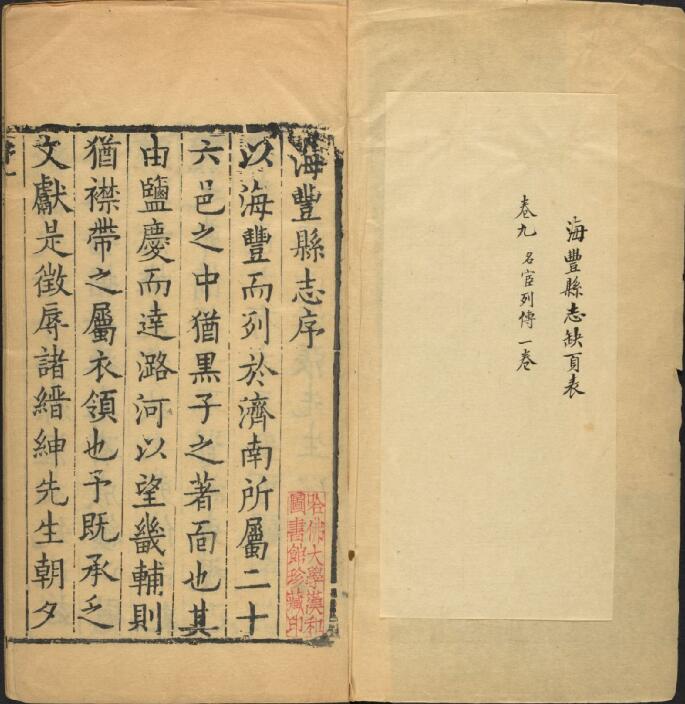 海豐縣志缺頁表
卷九 名宦列傳一卷
海豐縣志序
以海豐而列於濟南所屬二十
六邑之中猶黒子之著面也其
由鹽慶而達潞河以望畿輔則
猶襟帶之屬衣領也予既承乏
文獻是徵辱諸縉紳先生朝夕
哈佛大學漢和
圖書館珍藏印